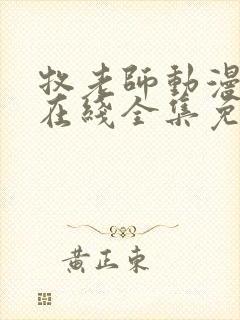 牧老師動漫
在綫全集免
黃正東